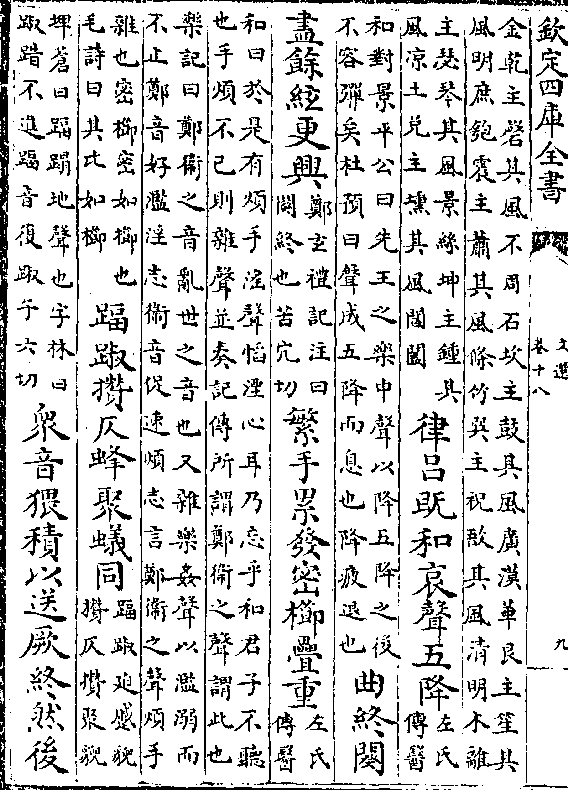 欽定四庫全書
文選
卷十八
九
金乾主磬其風不周石坎主鼓其風廣漠革艮主笙其
風明庶匏震主蕭其風條竹巽主柷敔其風清明木離
主瑟琴其風景絲坤主鍾其
風凉土兌主壎其風閶闔
律呂既和哀聲五降
左氏
傳醫
和對景平公曰先王之樂中聲以降五降之後
不容彈矣杜預曰聲成五降而息也降疲退也
曲終闋
盡餘絃更興
鄭玄禮記注曰
闋終也苦穴切
繁手累發密櫛疊重
左氏
傳醫
和曰於是有煩手淫聲慆湮心耳乃忘乎和君子不聽
也手煩不已則雜聲並奏記傳所謂鄭衛之聲謂此也
樂記曰鄭衛之音亂世之音也又雜樂姦聲以濫溺而
不止鄭音好濫淫志衛音促速煩志言鄭衛之聲煩手
雜也密櫛密如櫛也
毛詩曰其比如櫛
踾踧攢仄蜂聚蟻同
踾踧迫感貌
攢仄攢聚貌
埤蒼曰踾蹋地聲也字林曰
踧踖不進踾音復踧子六切
衆音猥積以送厥終然後